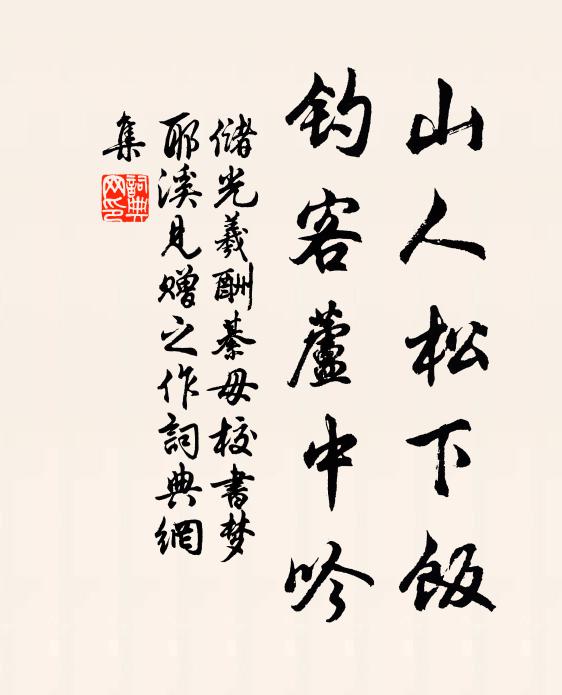 山人松下飯
釣客蘆中吟
儲光羲酬綦毋校書梦
耶溪見贈之作詞典網
集
詞典網印